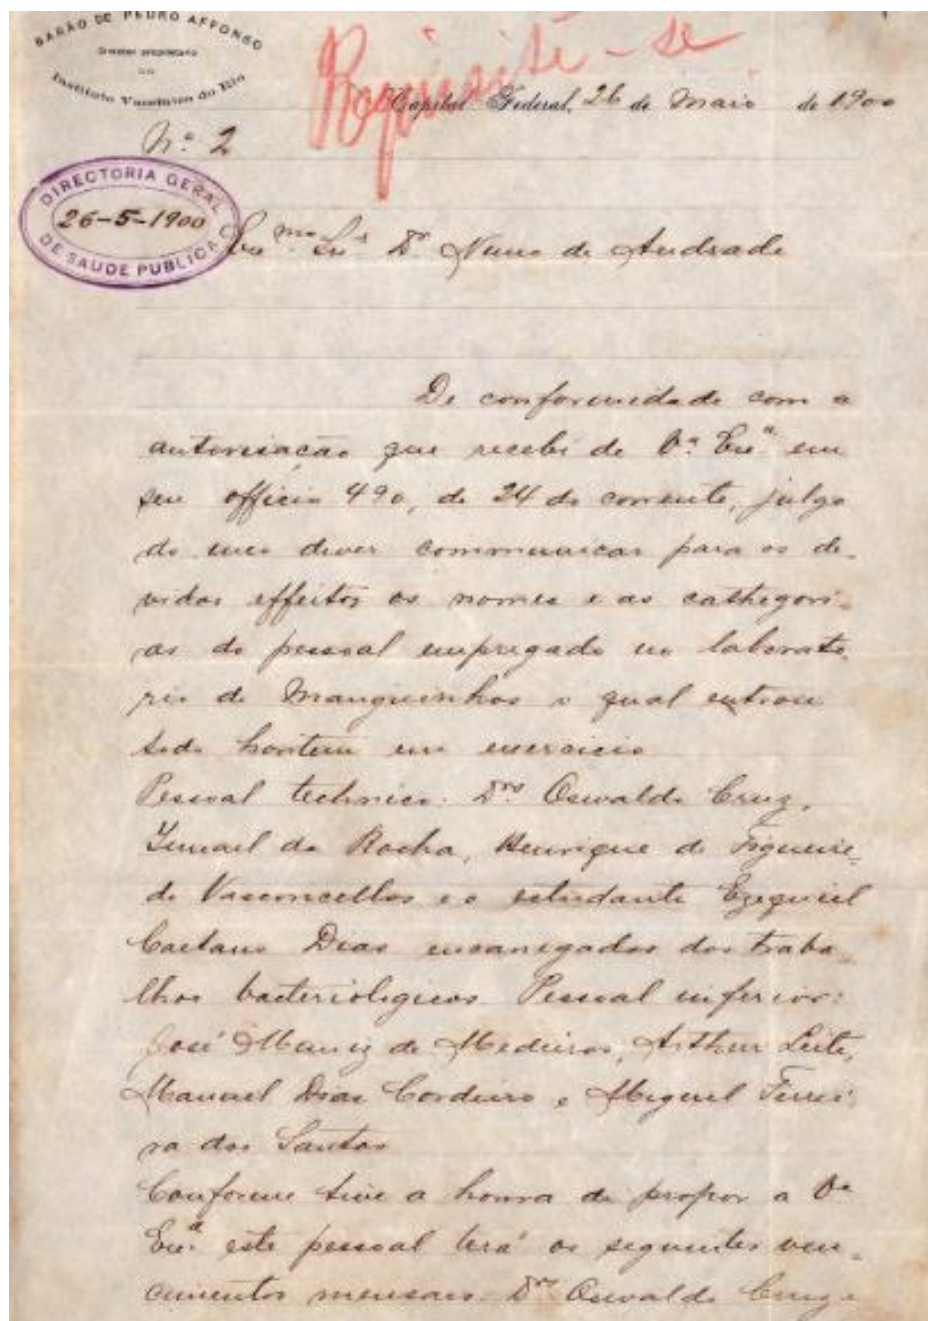 BARÃO DE PEDRO AFFONSO
Director proprietario
do
Instituto Vaccinico do Rio
Requisite-se
Capital Federal, 26 de Maio de 1900
Nº 2
DIRECTORIA GERAL
26-5-1900
DE SAUDE PUBLICA
Exmo Snr Dr Nuno de Andrade
De conformidade com a
autorisacão que recebi de Vª Exª em
seu officio 490, de 24 do corrente, julgo
do meu dever communicar para os de-
vidos effeitos os nomes e as cathegori-
as do pessoal empregado no laborato-
rio de Manguinhos o qual entrou
todo hontem em exercicio
Pessoal technico. Drs Oswaldo Cruz,
Ismael da Rocha, Henrique de Figueire-
do Vasconcellos e o estudante Ezequiel
Caetano Dias encarregados dos traba-
lhos bacteriologicos Pessoal inferior:
José Muniz de Medeiros, Arthur Leite,
Manuel Dias Cordeiro e Miguel Ferrei-
ra dos Santos
Conforme tive a honra de propor a Vª
Exª este pessoal terá os seguintes ven-
cimentos mensaes. Drs Oswaldo Cruz e